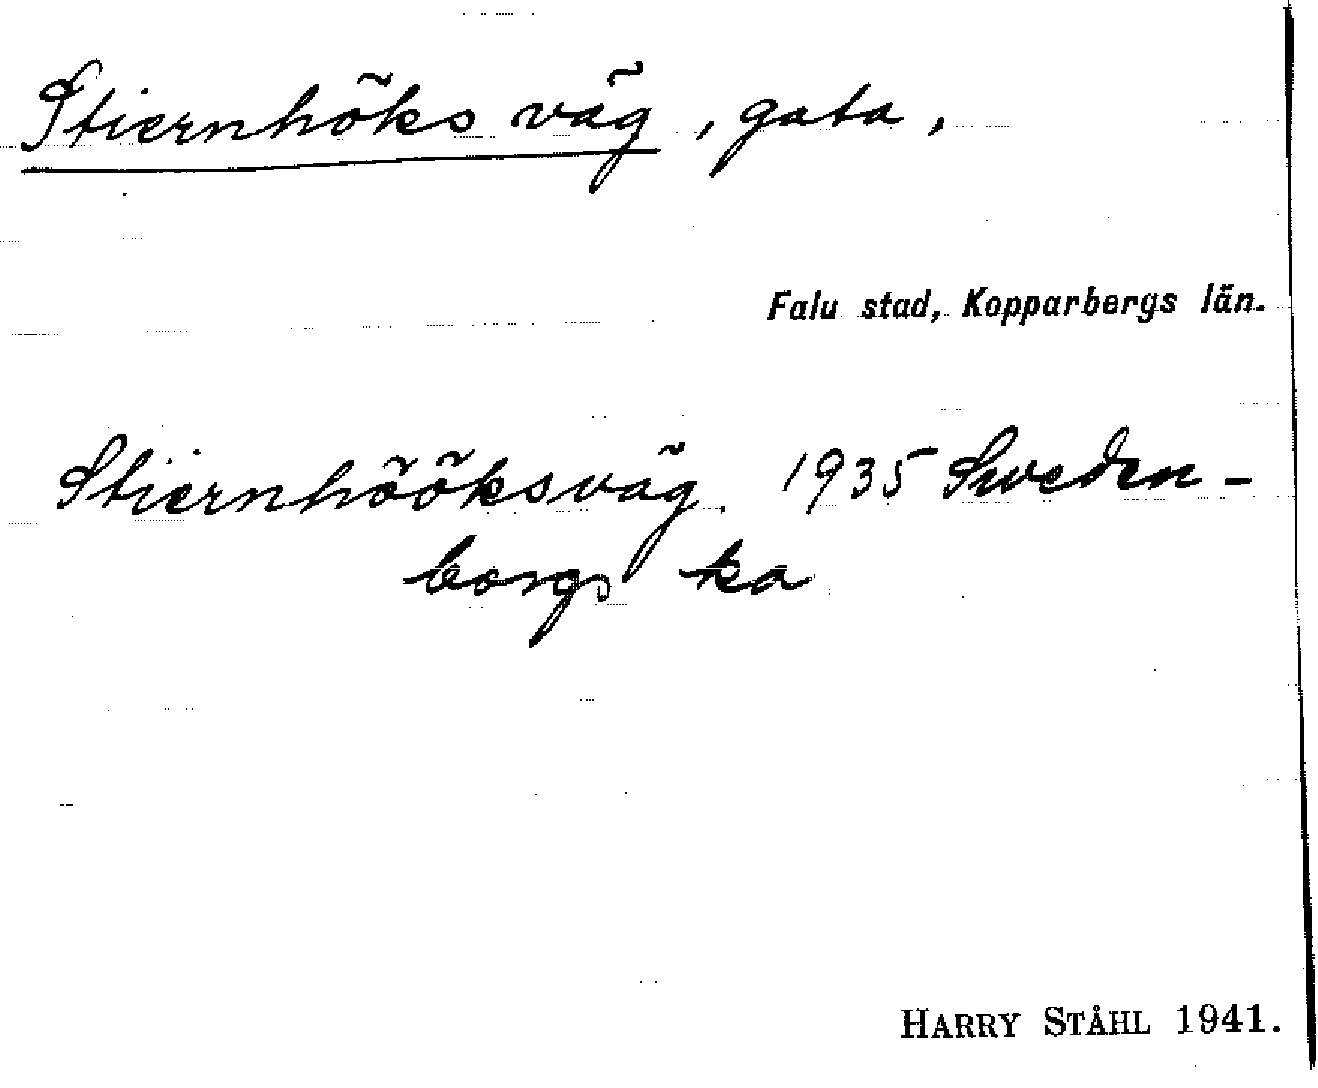 Stiernhöks väg, gata,
Falu stad, Kopparbergs län.
Stiernhööksväg 1935 Sweden-
borgs ka
HARRY STÅHL 1941.